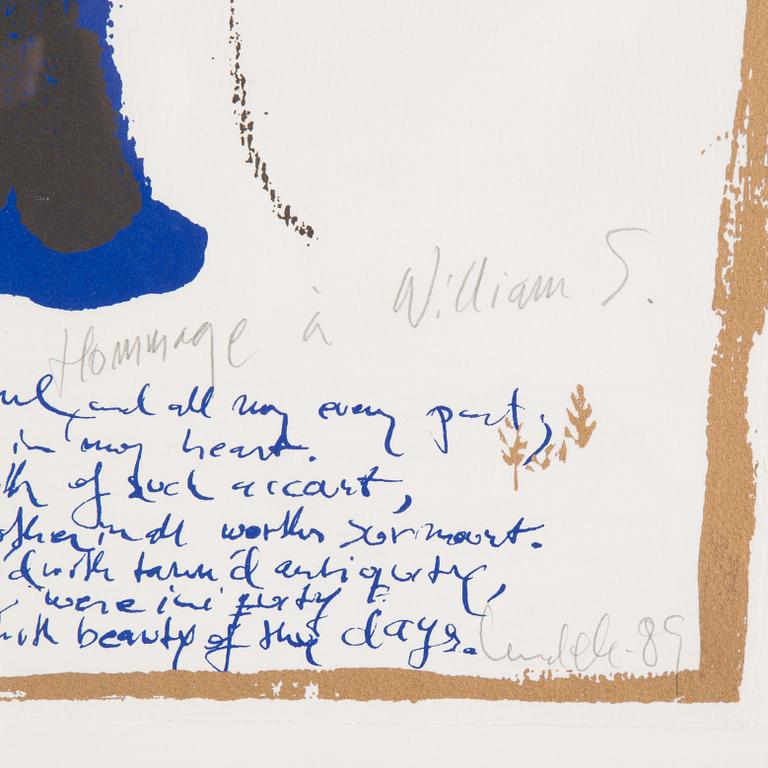 Hommage à William S.
and all my every part,
in my heart.
of such account,
other in all worths surmount.
d with tann'd antiquity,
were iniquity
with beauty of thy days.
-89